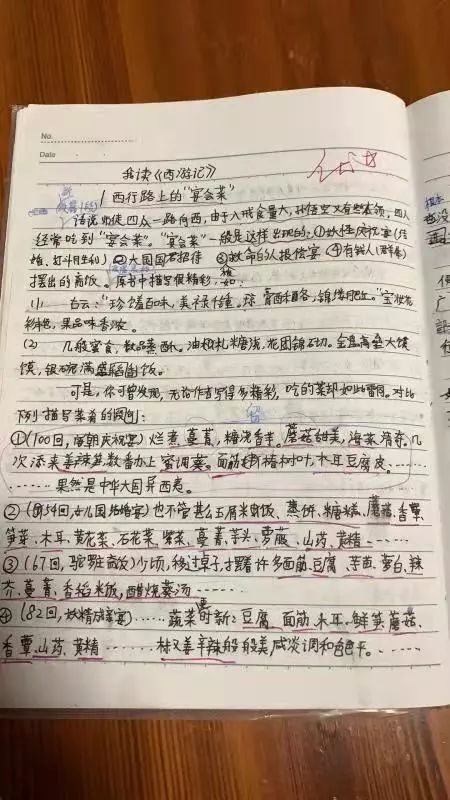 No.
Date
我读《西游记》
西行路上的“宴会菜”
话说师徒四众一路向西，由于八戒食量大，孙悟空又有些本领，四人
经常吃到“宴会菜”。“宴会菜”一般是这样出现的：①妖怪庆祝宴（结
婚、打斗胜利）②大国国君招待 ③救命的人报偿宴 ④有钱人（群众）
摆出的斋饭。原书中描写很精彩，如：
(1) 曰：“珍馐百味，美禄千钟。琼膏酥酪，锦缕肥红。”“宝妆花
彩艳，果品味香浓。
(2) 几般蜜食，数品蒸酥。油札糖浇，花团锦切。金盘高垒大馒
馍，银碗满盛稻饭。
可是，你可曾发现，无论作者写得多精彩，吃的菜却如此雷同。对比
下列描写菜肴的原句：
①(100回，唐朝庆祝宴) 烂煮蔓菁，糖浇香芋。蘑菇甜美，海菜清奇。几
次添来姜辣笋，数番办上蜜调葵。面筋椿树叶，木耳豆腐皮。……
……果然是中华大国异西夷。
②(54回，女儿国结婚宴) 也不管甚么玉屑米饭、蒸饼、糖糕、蘑菇、香蕈、
笋芽、木耳、黄花菜、石花菜、紫菜、蔓菁、芋头、萝菔、山药、黄精……
③(67回，驼罗救)少顷，移过桌子，摆着许多面筋、豆腐、芋苗、萝白、辣
芥、蔓菁、香稻米饭，醋烧葵汤……
④(82回，妖精成亲宴)……蔬菜更时新：豆腐、面筋、木耳、鲜笋、蘑菇、
香蕈、山药、黄精……椒姜辛辣般般美，咸淡调和色色平。……